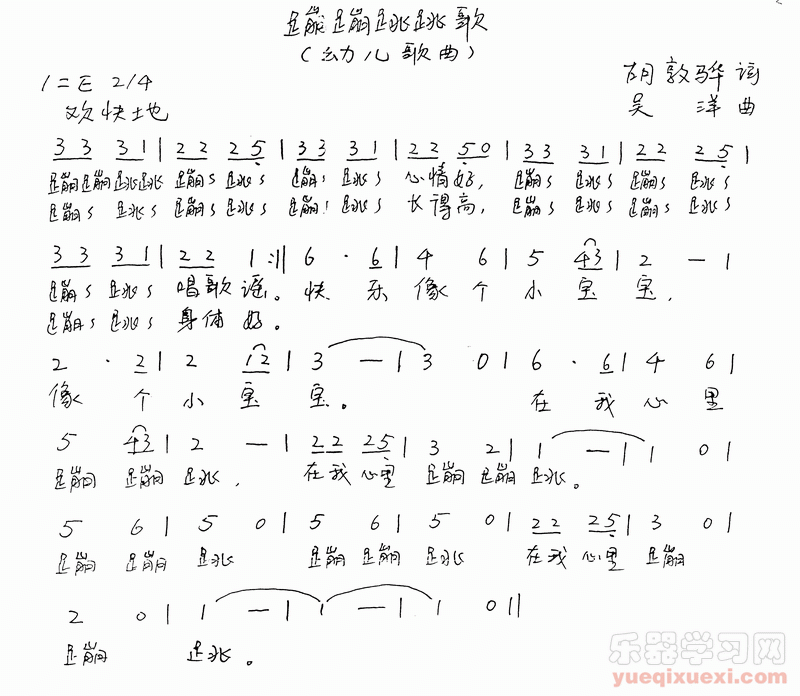 蹦蹦跳跳歌
(幼儿歌曲)
1=E 2/4
胡敦骅词
欢快地
吴 洋 曲
3 3 3 1 | 2 2 2 5 | 3 3 3 1 | 2 2 5 0 | 3 3 3 1 | 2 2 2 5 |
蹦蹦跳跳 蹦蹦 跳跳 蹦蹦 跳跳 心情好, 蹦蹦 跳跳 蹦蹦 跳跳
蹦蹦 跳跳 蹦蹦 跳跳 蹦蹦 跳跳 长得高, 蹦蹦 跳跳 蹦蹦 跳跳
3 3 3 1 | 2 2 1 :‖ 6 · 6 | 4 6 | 5 43 | 2 — |
蹦蹦 跳跳 唱歌谣。快 乐 像 个 小 宝 宝,
蹦蹦 跳跳 身体 好。
2 · 2 | 2 12 | 3 — | 3 0 | 6 · 6 | 4 6 |
像 个 小 宝 宝。 在 我 心 里
5 43 | 2 — | 22 25 | 3 2 | 1 — | 1 0 |
蹦 蹦 跳, 在我 心里 蹦 蹦 跳。
5 6 | 5 0 | 5 6 | 5 0 | 22 25 | 3 0 |
蹦 蹦 跳 蹦 蹦 跳 在我 心里 蹦
2 0 | 1 — | 1 — | 1 0 ‖
蹦 跳。
乐器学习网
yueqixuexi.com